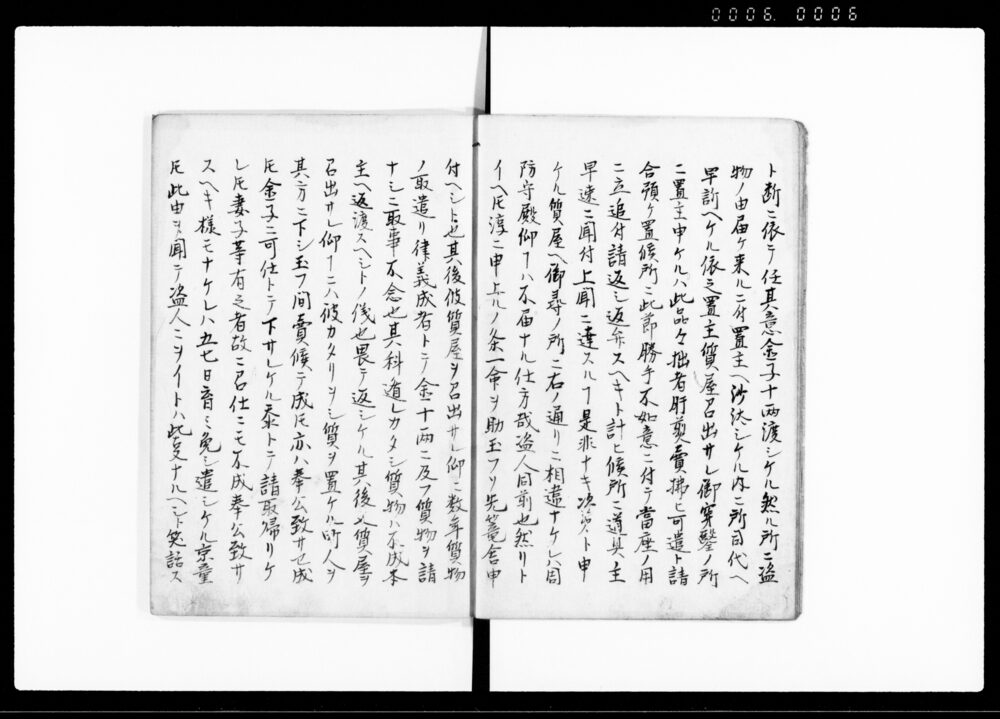 0006. 0006
ト断ニ依テ任其意金子十両渡シケル然ル所ニ盗
物ノ由届ケ来ルニ付置主ヘ沙汰シケル内ニ所目代ヘ
早訴ヘケル依之置主質屋召出サレ御穿鑿ノ所
ニ置主申ケルハ此品々拙者肝煎賣拂ヒ可遣ト請
合預ケ置候所ニ此節勝手不如意ニ付テ當座ノ用
ニ立追付請返シ返弁スヘキト計ヒ候所ニ道具主
早速ニ聞付上聞ニ達スルヿ是非ナキ次第ト申
ケル質屋ヘ御尋ノ所ニ右ノ通リニ相違ナケレハ周
防守殿仰ヿハ不届ナル仕方哉盗人同前也然リト
イヘ𪜈淳ニ申上ルノ条一命ヲ助玉フソ先篭舎申
付ヘシト也其後彼質屋ヲ召出サレ仰ニ数年質物
ノ取遣リ律義成者トテ金十両ニ及フ質物ヲ請
ナシニ取事不念也其科遁レカタシ質物ハ不成本
主ヘ返渡スヘシトノ儀也畏テ返シケル其後又質屋ヲ
召出サレ仰ヿニハ彼カタリヲシ質ヲ置ケル所人ヲ
其方ニ下シ玉フ間賣候テ成𪜈亦ハ奉公致サセ成
𪜈金子ニ可仕トテ下サレケル忝トテ請取帰リケ
レ𪜈妻子等有之者故ニ召仕ニモ不成奉公致サ
スヘキ様モナケレハ五七日育ミ免シ遣シケル京童
𪜈此由ヲ聞テ盗人ニヲイトハ此叓ナルヘシト笑話ス